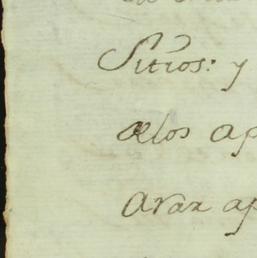 Sitios: y
delos ap
arax ap